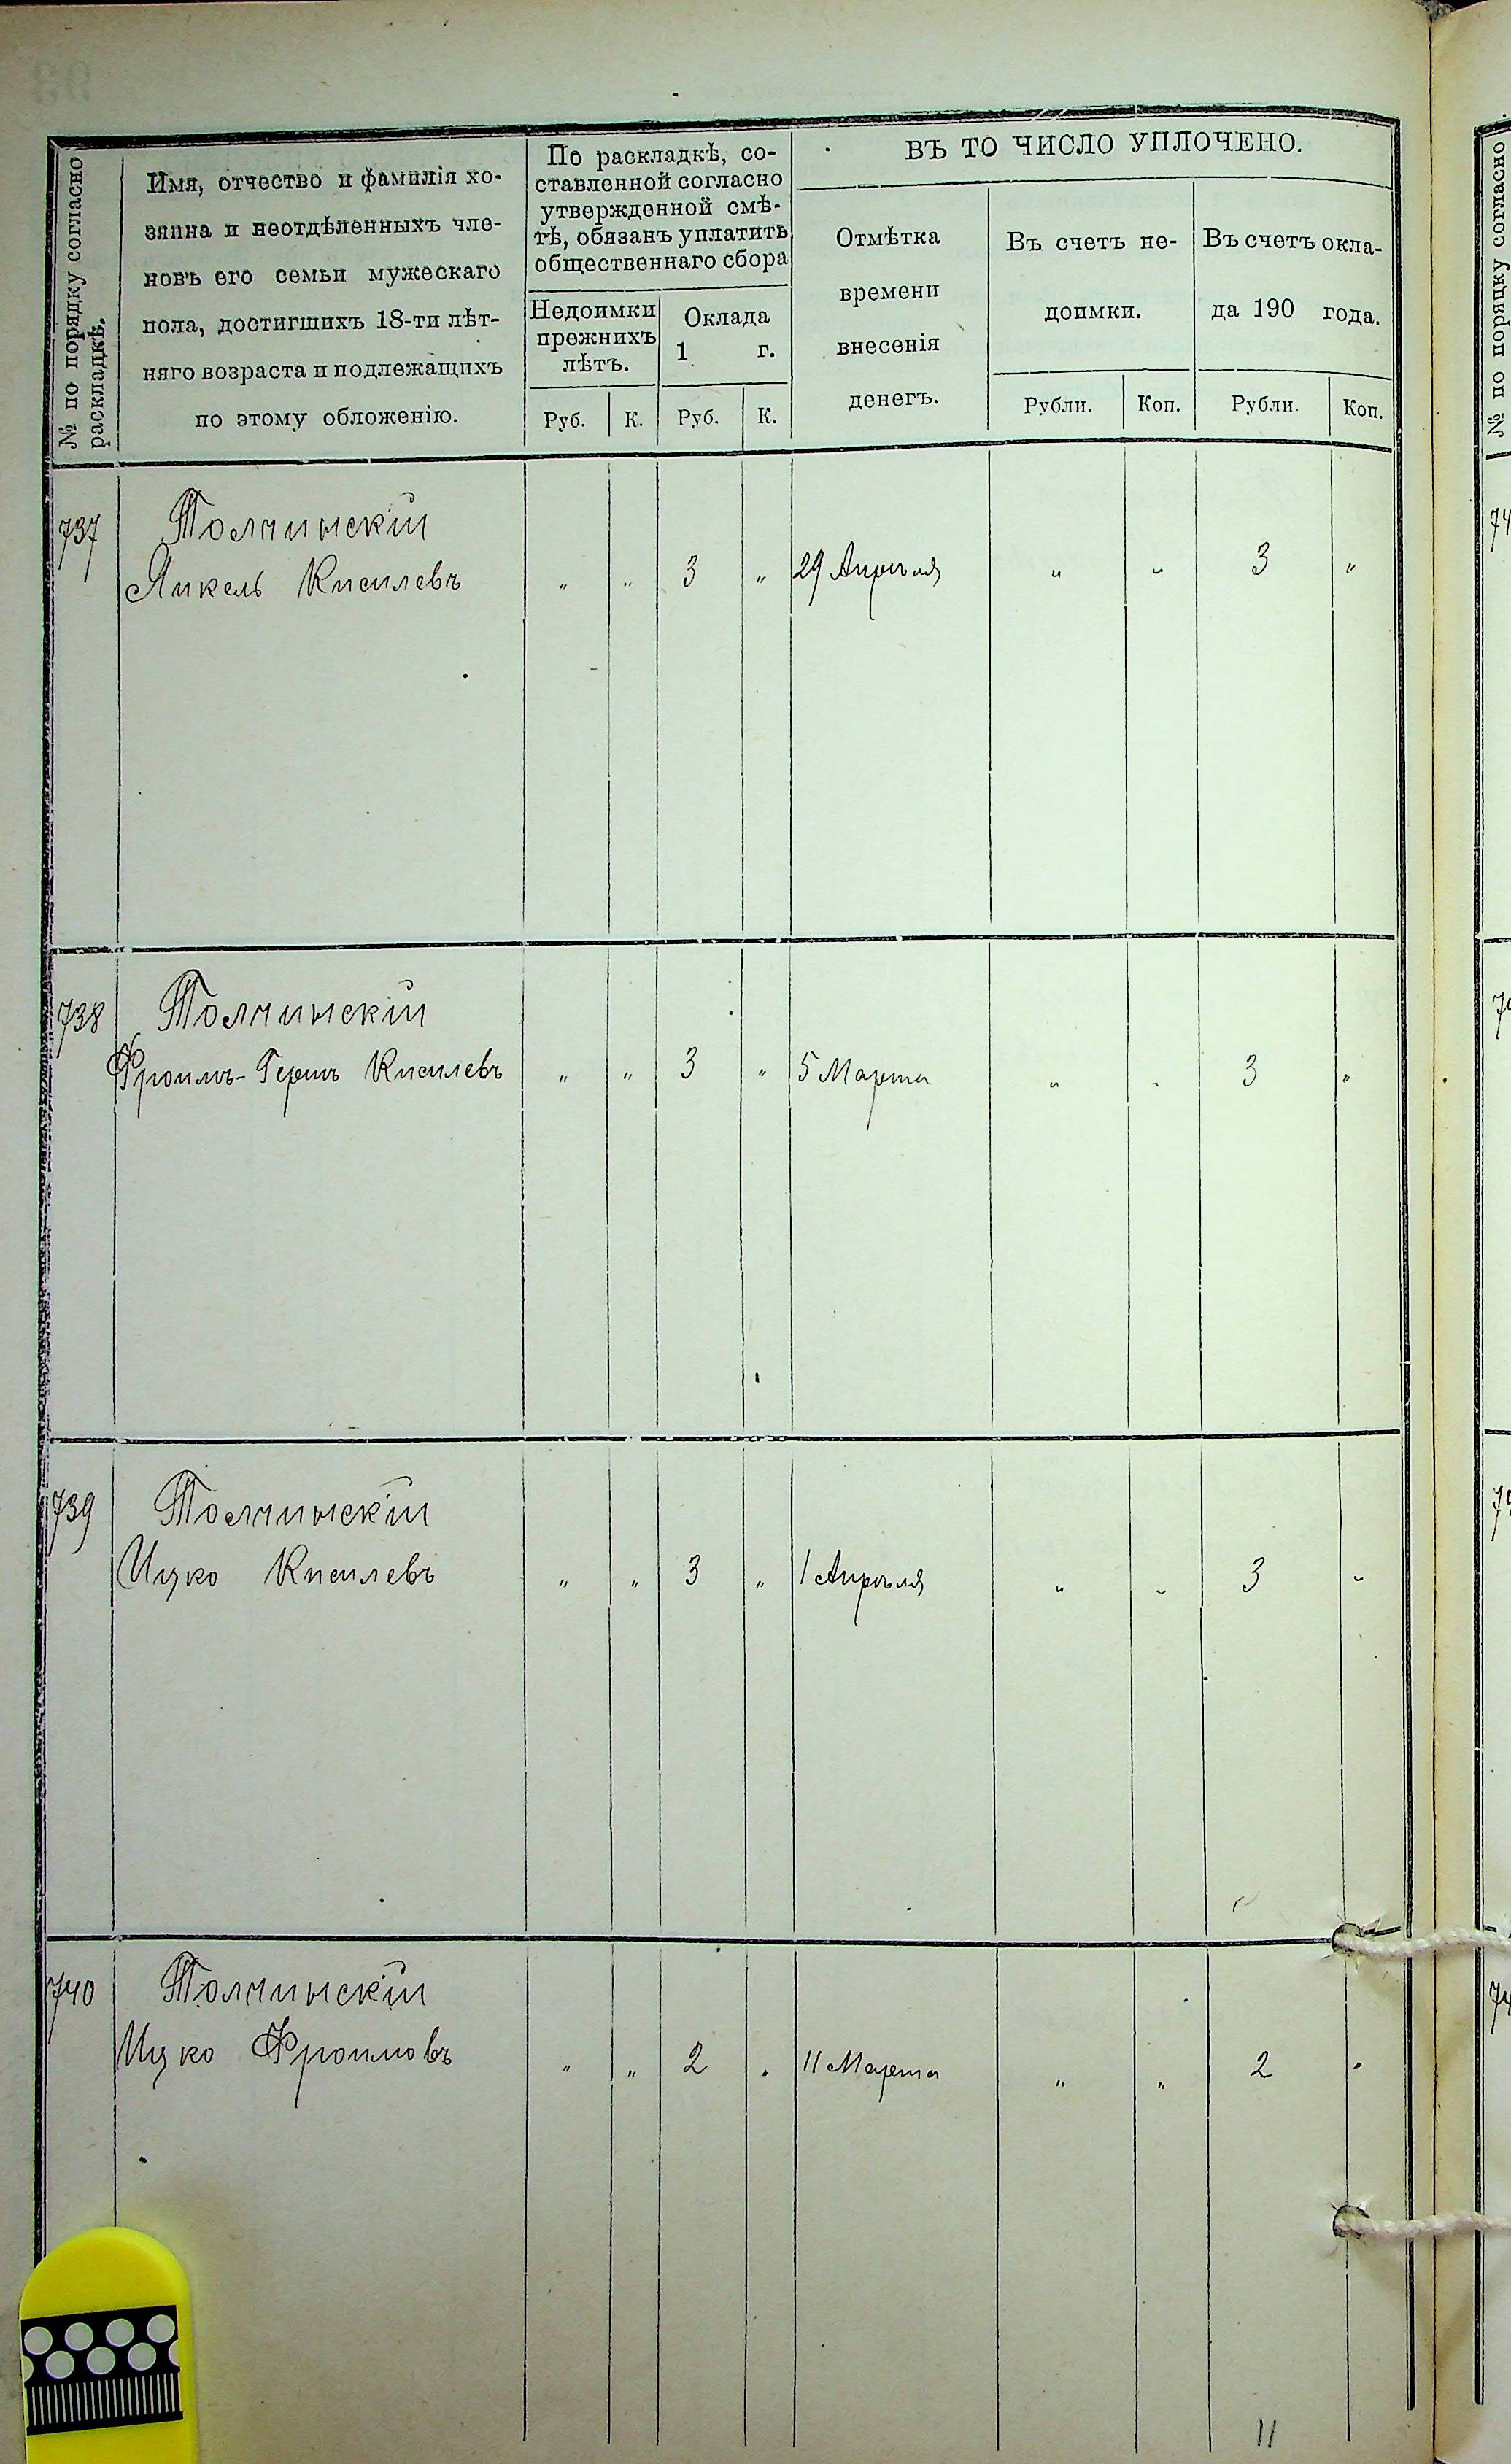 № по порядку согласно
раскладкѣ.
Имя, отчество и фамилія хо-
зяина и неотдѣленныхъ чле-
новъ его семьи мужескаго
пола, достигшихъ 18-ти лѣт-
няго возраста и подлежащихъ
по этому обложенію.
По раскладкѣ, со-
ставленной согласно
утвержденной смѣ-
тѣ, обязанъ уплатить
общественнаго сбора
Недоимки
прежнихъ
лѣтъ.
Оклада
1 г.
Руб. К. Руб. К.
ВЪ ТО ЧИСЛО УПЛОЧЕНО.
Отмѣтка
времени
внесенія
денегъ.
Въ счетъ не-
доимки.
Въ счетъ окла-
да 190 года.
Рубли. Коп. Рубли. Коп.
737 Толчинскій
Янкель Кисилевъ " " 3 " 29 Апрѣля " " 3 "
738 Толчинскій
Фроимъ-Гершъ Кисилевъ " " 3 " 5 Марта " " 3 "
739 Толчинскій
Ицко Кисилевъ " " 3 " 1 Апрѣля " " 3 "
740 Толчинскій
Ицко Фроимовъ " " 2 " 11 Марта " " 2 "
11
№ по порядку согласно